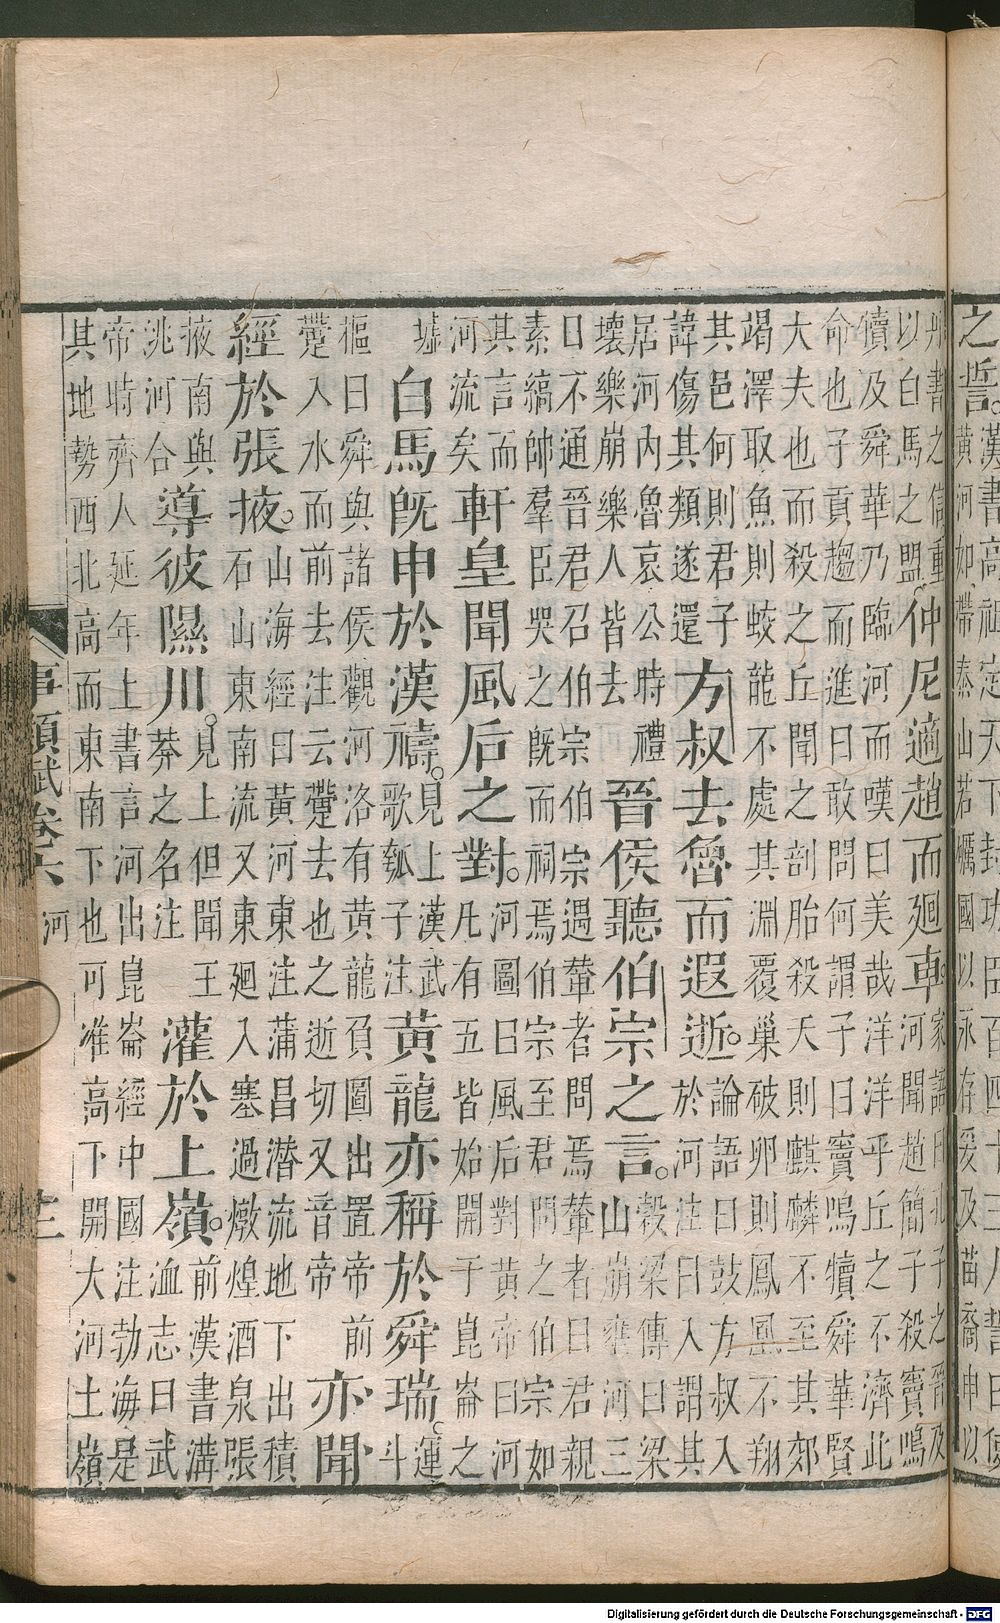 之誓。
漢書高祖定天下封功臣百四十三人誓曰使
黃河如帶泰山若礪國以永存爰及苗裔申以
丹書之信重
以白馬之盟
仲尼適趙而廻車。
家語曰孔子之晉及
河聞趙簡子殺竇鳴
犢及舜華乃臨河而嘆曰美哉洋洋乎丘之不濟此
命也子貢趨而進曰敢問何謂子曰竇鳴犢舜華賢
大夫也而殺之丘聞之刳胎殺夭則麒麟不至其郊
竭澤取魚則蛟龍不處其淵覆巢破卵則鳳凰不翔
其邑何則君子
諱傷其類遂還
方叔去魯而遐逝。
論語曰鼓方叔入
於河注曰入謂其
居河內魯哀公時禮
壞樂崩樂人皆去
晉侯聽伯宗之言。
穀梁傳曰梁
山崩壅河三
日不通晉君召伯宗伯宗遇輦者問焉輦者曰君親
素縞帥羣臣哭之旣而祠焉伯宗至君問之伯宗如
其言而
河流矣
軒皇聞風后之對。
河圖曰風后對黃帝曰河
凡有五皆始開于崑崙之
墟
白馬旣申於漢禱。
見上漢武
歌瓠子注
黃龍亦稱於舜瑞。
運
斗
樞曰舜與諸侯觀河洛有黃龍負圖出置帝前
躉入水而前去注云躉去也之逝切又音帝
亦聞
經於張掖。
山海經曰黃河東注蒲昌潛流地下出積
石山東南流又東廻入塞過燉煌酒泉張
掖南與
洮河合
導彼隰川。
見上但聞王
莽之名注
灌於上嶺。
前漢書溝
洫志曰武
帝時齊人延年上書言河出崑崙經中國注勃海是
其地勢西北高而東南下也可准高下開大河土嶺
事類賦卷六
河
Digitalisierung gefördert durch die Deutsche Forschungsgemeinschaft - DFG